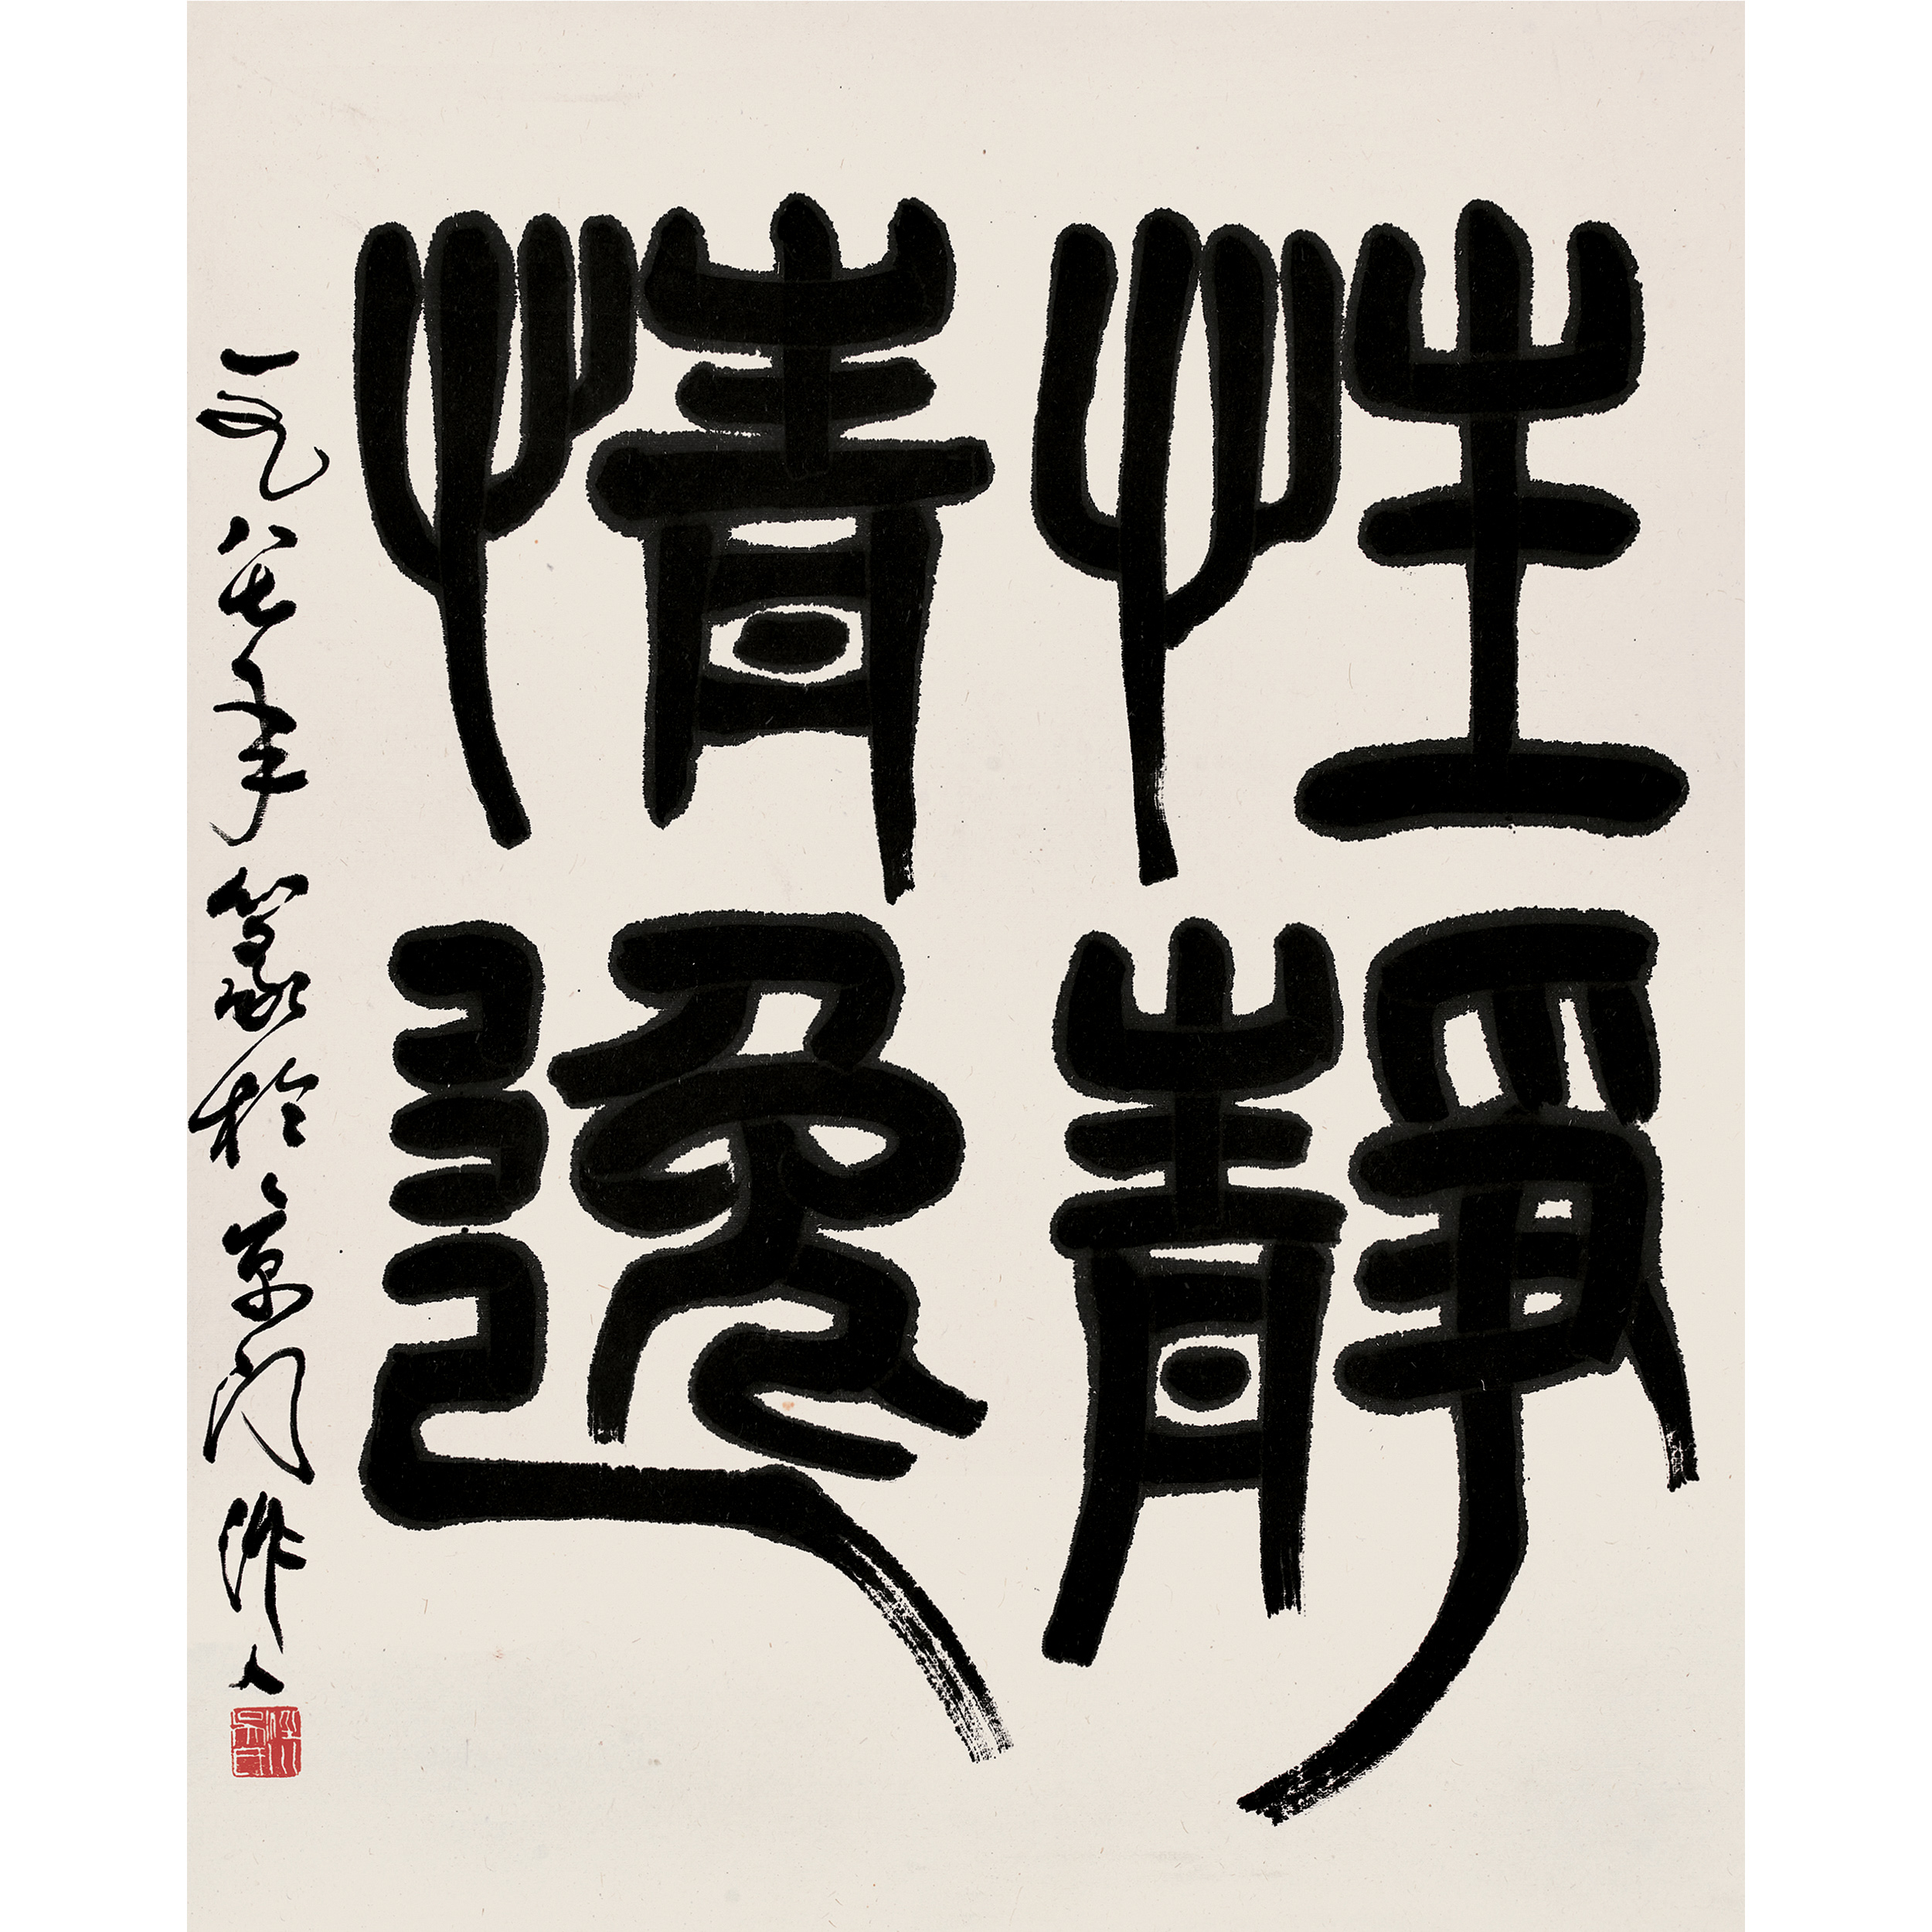 性靜
情逸
一九八七年篆於京门作人